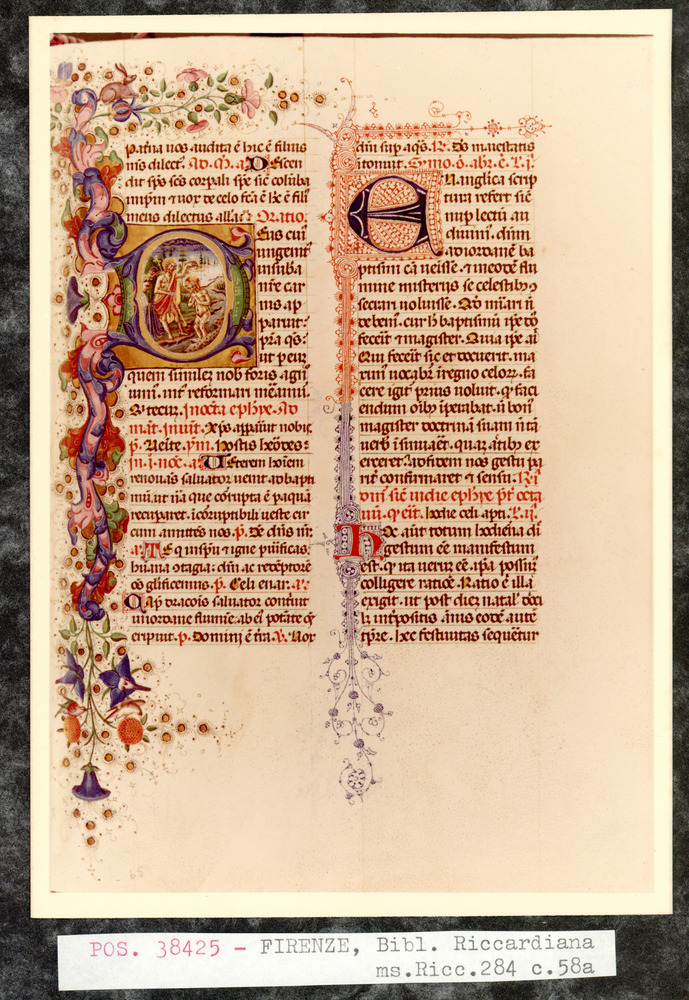 patīna uox audita ē hic ē filius
ms dilect. Ad. M. a. Descen
dit sps scs corpali spē sic colūba
ī ipm uox de celo fca ē hic ē fili
meus dilectus alla Oratio.
Deus cui
unigenit
in suba
nre car
nis ap
paruit:
pra qs:
ut p eum
quem similez nob foris agn
uim. int reformari meamur.
epyhe. Ad
mat. inuit. Xps apparuit nobis.
p. Uenite. ym. hostis herodes:
In. i. noc. a. Ueterem hoiem
renouans saluator uenit ad bapti
mū ut nā que corrupta ē p aquā
recuparet. icorruptibili ueste cir
cum amictēs nos. p. de dnis
a. Te q in spu igne puificas
humana otagia. dm ac redēptorē
oēs glificemus. p. Celi enar. a.
Cap draconis saluator contriuit
in iordane flumine. ab ei potate
eripiuit. p. Domini ē tra. Uox
dni sup aqs. R. Ds maiestatis
itonuit. L. i.
Euanglica scrip
tura refert
nup lectū au
diuim. dnm
ad iordanē ba
ptismi cā ueisse. in eodē flu
mine misterius se celestibus
secrari uoluisse. mirari ñ
debem. cur h baptismū ipe ds
fecerit magister. Quia ipe ait
Qui fecerit sic et docuerit. ma
xim uocabr i regno celorz. fa
cere igit prius uoluit. q faci
endum oibs ipeabat. ñ boni
magister doctrinā suam ita
uerb insinuaēt. qua actibz ex
erceret. ad fidem nos gestu pa
rit confirmaret sensu.
oni sic in die ephyie pt octa
uū. hodie celi apti. L. ii.
Hoc aūt totum hodiena di
gestum ēe manifestum
est. ita ueruz ēe. ipa possum
colligere ratioē. Ratio ē illa
exigit. ut post diez natal dni
annus eodē
tpre. hec festiuitas sequetur
POS. 38425 - FIRENZE, Bibl. Riccardiana
ms.Ricc.284 c.58a